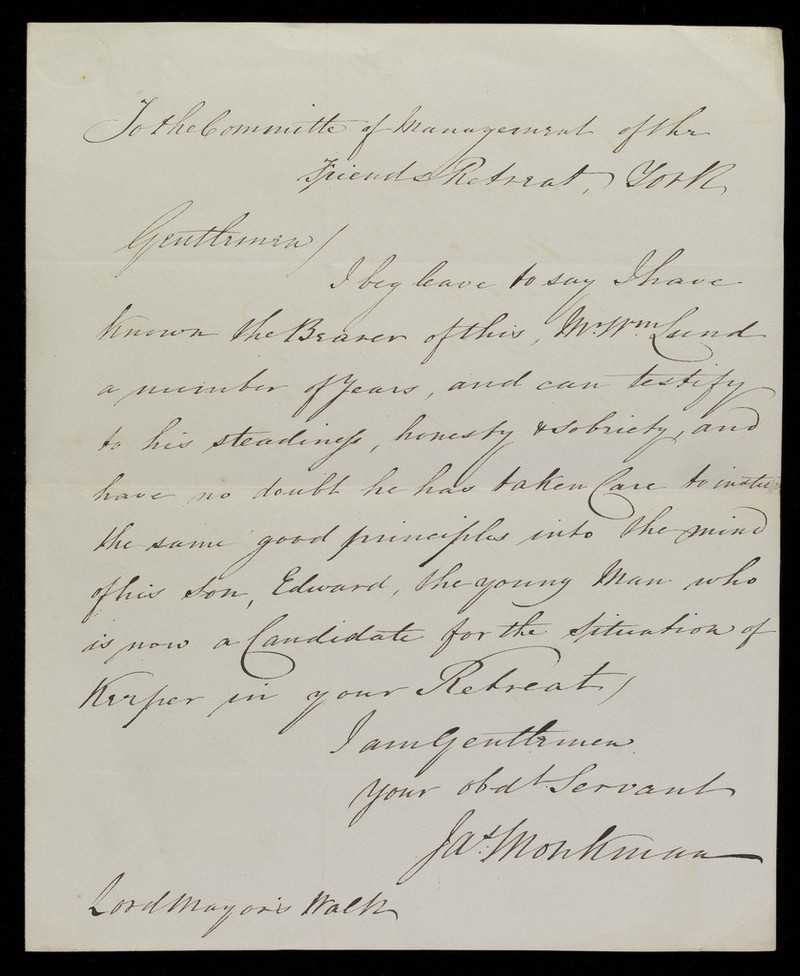 To the Committe of Management of the
Friends Retreat, York
Gentlemen/
I beg leave to say I have
known the Bearer of this, Mr. Wm. Lund
a number of Years, and can testify
to his steadiness, honesty & sobriety, and
have no doubt he has taken Care to
the same good principles into the mind
of his son, Edward, the young Man who
is now a Candidate for the situation of
Keeper in your Retreat/
I am Gentlemen
your obdt Servant
Jas. Monkman
Lord Mayor's Walk